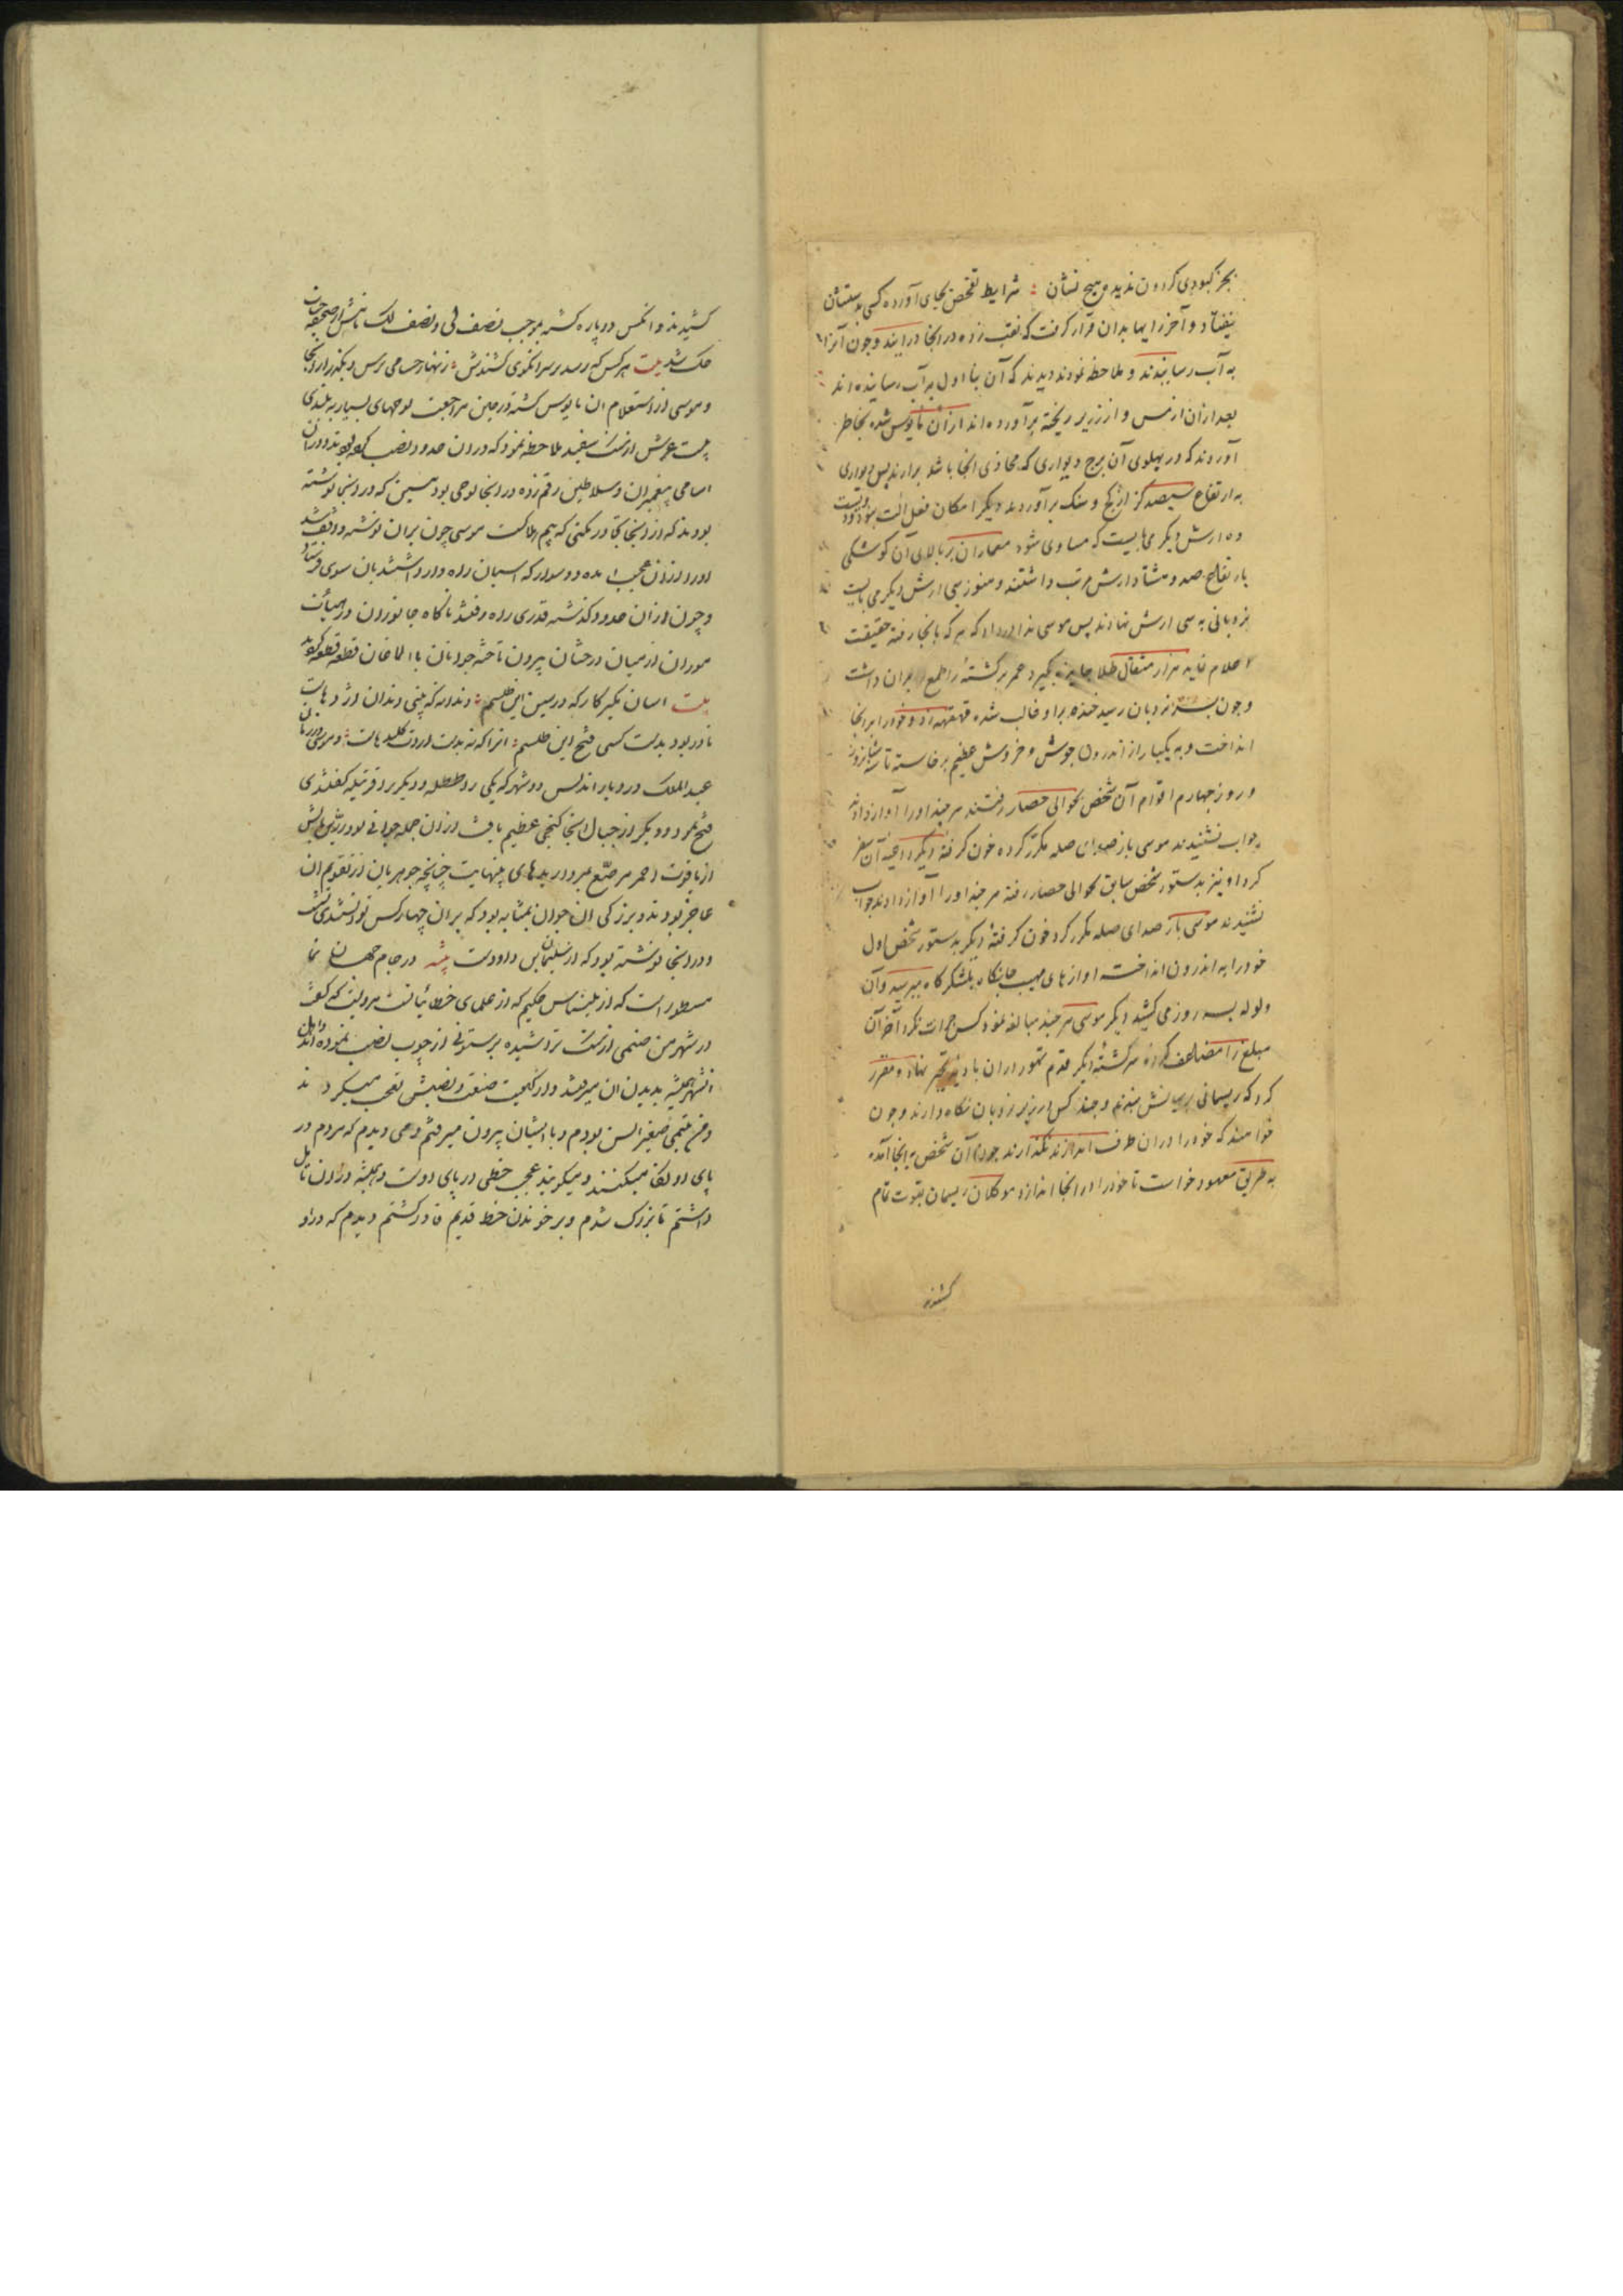 بجز کبودی کردون ندید هیچ نشان : شرایط تفحص بجای آورده کسی بدستشان
نیفتاد و آخر رایها بدان قرار کرفت که نقب زده در انجا درایند و چون آنرا
به آب رسانیدند و ملاحظه نمودند دیدند که آن بنا اول به آب رسانیده اند
بعد ازان از مس و ارزیز ریخته برآورده اند ازان مایوس شده بخاطر
آوردند که در پهلوی آن برج دیواری که محاذی انجا باشد برارند پس دیواری
به ارتفاع سیصد کز از کچ و سنک برآوردند دیکر امکان نبود و دویست
ده ارش دیکر می بایست که مساوی شود معماران بر بالای آن کوشکی
بارتفاع صد و هشتاد ارش مرتب داشتند و هنوز سی ارش دیکر می بایست
نردبانی به سی ارش نهادند پس موسی ندا در داد که هر که بانجا رفته حقیقت
اعلام نماید هزار مثقال طلا جایزه بکیرد عمر برکشتهٔ را طمع بران داشت
و چون بسر نردبان رسید خنده برو غالب شده قهقهه زد و خود را بر انجا
انداخت و به یکبار از اندرون جوش و خروش عظیم برخاسته تا سه شبانروز
و روز چهارم اقوام آن شخص بحوالی حصار رفتند هر چند او را آواز دادند
جواب نشنیدند موسی باز صدای صله مکرر کرده خون کرفتهٔ دیکر داعیه آن سفر
کرد او نیز بدستور شخص سابق بحوالی حصار رفته هر چند او را آواز دادند جواب
نشنیدند موسی باز صدای صله مکرر کرد خون کرفتهٔ دیکر بدستور شخص اول
خود را به اندرون انداخت اوازهای مهیب جانکاه بلشکرکاه میرسید و آن
ولوله بسه روز می کشید دیکر موسی هر چند مبالغه نمود کس جرات نکرد آخر آن
مبلغ را مضاعف کرده سرکشتهٔ دیکر قدم تهور دران بادیه تحیر نهاد و مقرر
کرد که ریسمانی بمیانش ببندند و چند کس در زیر نردبان نکاه دارند و چون
خواهند که خود را دران طرف اندازند نکذارند چون آن شخص به انجا آمده
به طریق معهود خواست تا خود را در انجا اندازد موکلان ریسمان بقوت تمام
کشیدند
کشیدند و انکس دو پاره کشته بموجب نصف لی و نصف لک نامش از صحیفه حیات
حک شد بیت هر کس که رسد بر سر انکوی کشندش : زنهار حسامی برس و بکذر از انجا
و موسی از استعلام ان مایوس کشته در حین مراجعت لوحهای بسیار به بلندی
بیست عرش از سنک سفید ملاحظه نمود که دران حدود نصب کرده بودند و دران
اسامی پیغمبران و سلاطین رقم زده در انجا لوحی بود مسین که در اینجا نوشته
بودند که از اینجا تجاوز مکنی که بیم هلاکت موسی چون بران نوشته واقف شد
اورا ازان عجب امده دو سوار که اسبان راه وار داشتند بان سوی فرستاد
و چون ازان حدود کذشته قدری راه رفتند ناکاه جانوران در هیأت
موران از میان درختان بیرون تاخته جوانان با الاغان قطعه قطعه کردند
بیت اسان مکیر کار که در بس این طلسم : دندانه که بینی دندان اژدهاست
نادر بود بدست کسی فتح این طلسم : انرا که نه بدست ارادت کلیدهاست : و موسی در زمان
عبدالملک در دیار اندلس دو شهر که یکی را طلطله و دیکر را قرتیکه کفتندی
فتح نمود و دیکر از جبال انجا کنجی عظیم یافت از ان جمله خوانی بود زرین پایش
از یاقوت احمر مرصع بمرواریدهای بینهایت چنانچه جوهریان از تقویم ان
عاجز بودند و بزرکی ان خوان بمثابه بود که بران چهار کس توانستندی نشست
و در انجا نوشته بود که از سلیمان بن داودست بیته در جام جهان نما
مسطور است که از بلیناس حکیم که از علمای خطائیانست مرویست که کفت
در شهر من صنمی از سنک تراشیده بر ستونی از چوب نصب نموده اند و اهل
انشهر همیشه بدیدن ان میرفتند و از کیفیت صنعت و نصبش تعجب میکردند
و من یتیمی صغیر السن بودم و با ایشان بیرون میرفتم و می دیدم که مردم در
پای او نکاه میکنند و میکویند عجب خطی در پای اوست و همیشه در ان تامل
داشتم تا بزرک شدم و بر خواندن خط قدیم قادر کشتم دیدم که در او